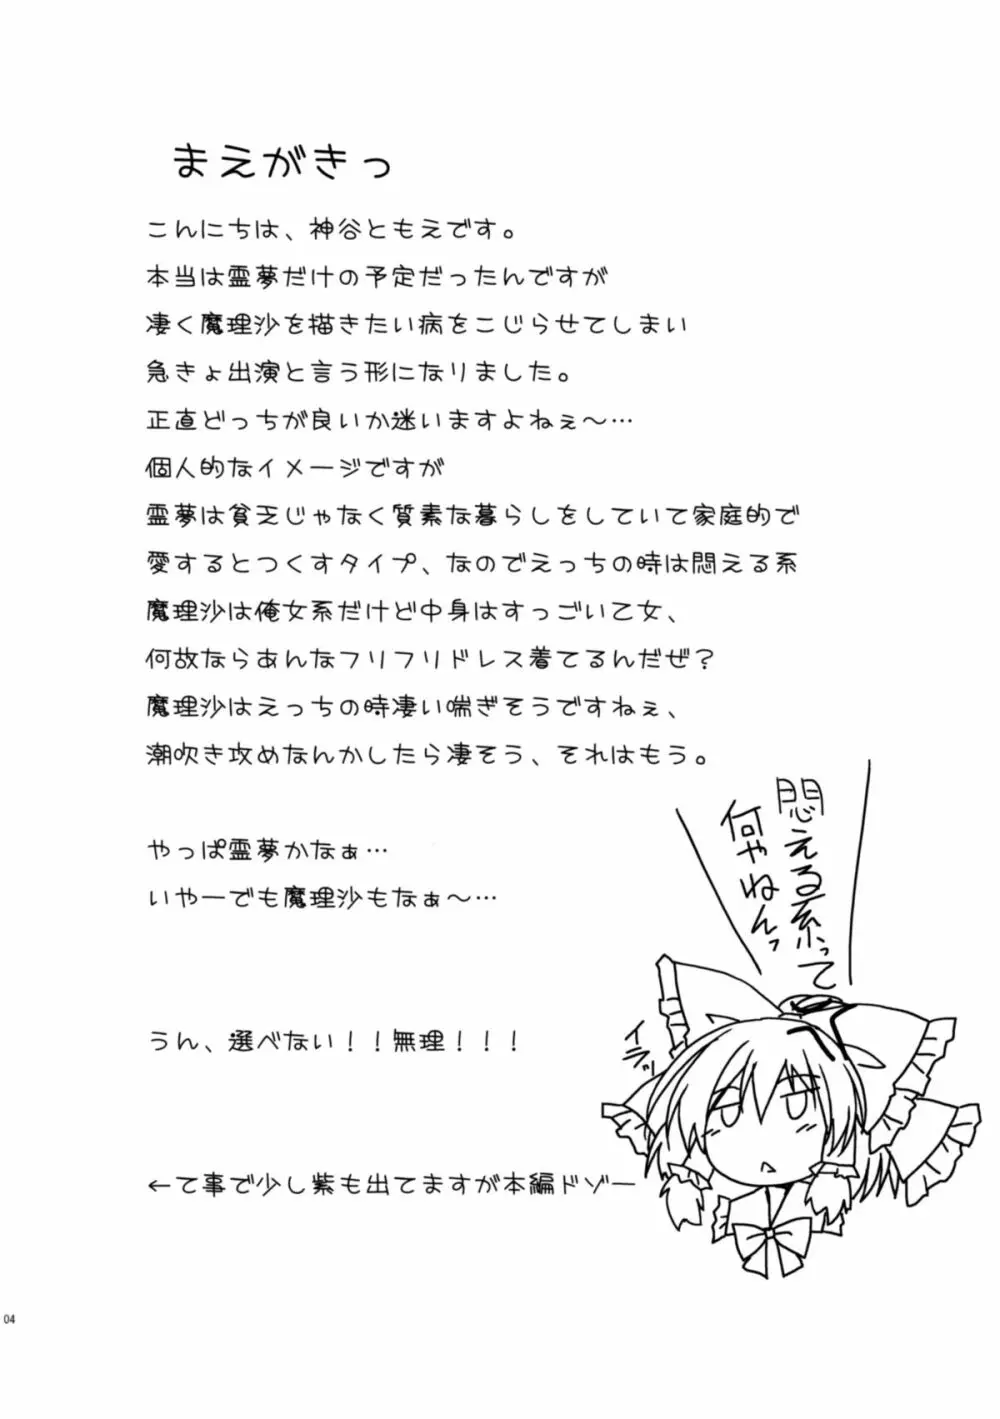 まえがきっ
こんにちは、神谷ともえです。
本当は霊夢だけの予定だったんですが
凄く魔理沙を描きたい病をこじらせてしまい
急きょ出演と言う形になりました。
正直どっちが良いか迷いますよねぇ～…
個人的なイメージですが
霊夢は貧乏じゃなく質素な暮らしをしていて家庭的で
愛するとつくすタイプ、なのでえっちの時は悶える系
魔理沙は俺女系だけど中身はすっごい乙女、
何故ならあんなフリフリドレス着てるんだぜ？
魔理沙はえっちの時凄い喘ぎそうですねぇ、
潮吹き攻めなんかしたら凄そう、それはもう。
やっぱ霊夢かなぁ…
いやーでも魔理沙もなぁ～…
うん、選べない！！無理！！！
←て事で少し紫も出てますが本編ドゾー
悶える系って
何やねんっ
イラッ
04